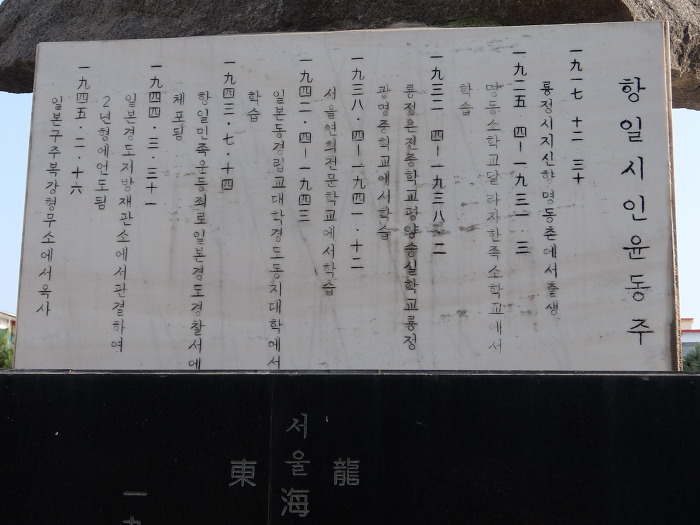 항일시인윤동주
一九一七 十二 三十
룡정시지신향 명동촌에서출생
一九二五 四ー一九三一. 三
명동소학교달라자한족소학교에서
학습
一九三二 四ー一九三八 二
룡정은진중학교평양숭실학교룡정
광명중학교에서학습
一九三八·四ー一九四一·十二
서울연희전문학교에서학습
一九四二·四ー一九四三
일본동경립교대학경도동지대학에서
학습
一九四三·七·十四
항일민족운동죄로일본경도경찰서에
체포됨
一九四四·三·三十一
일본경도지방재판소에서판결하여
2년형에언도됨
一九四五·二·十六
일본구주복강형무소에서옥사
龍
서울
海
東
一九